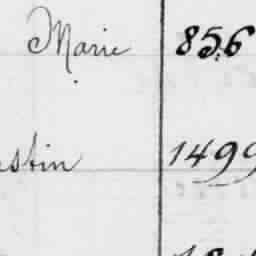 Marie 856
stin 1499